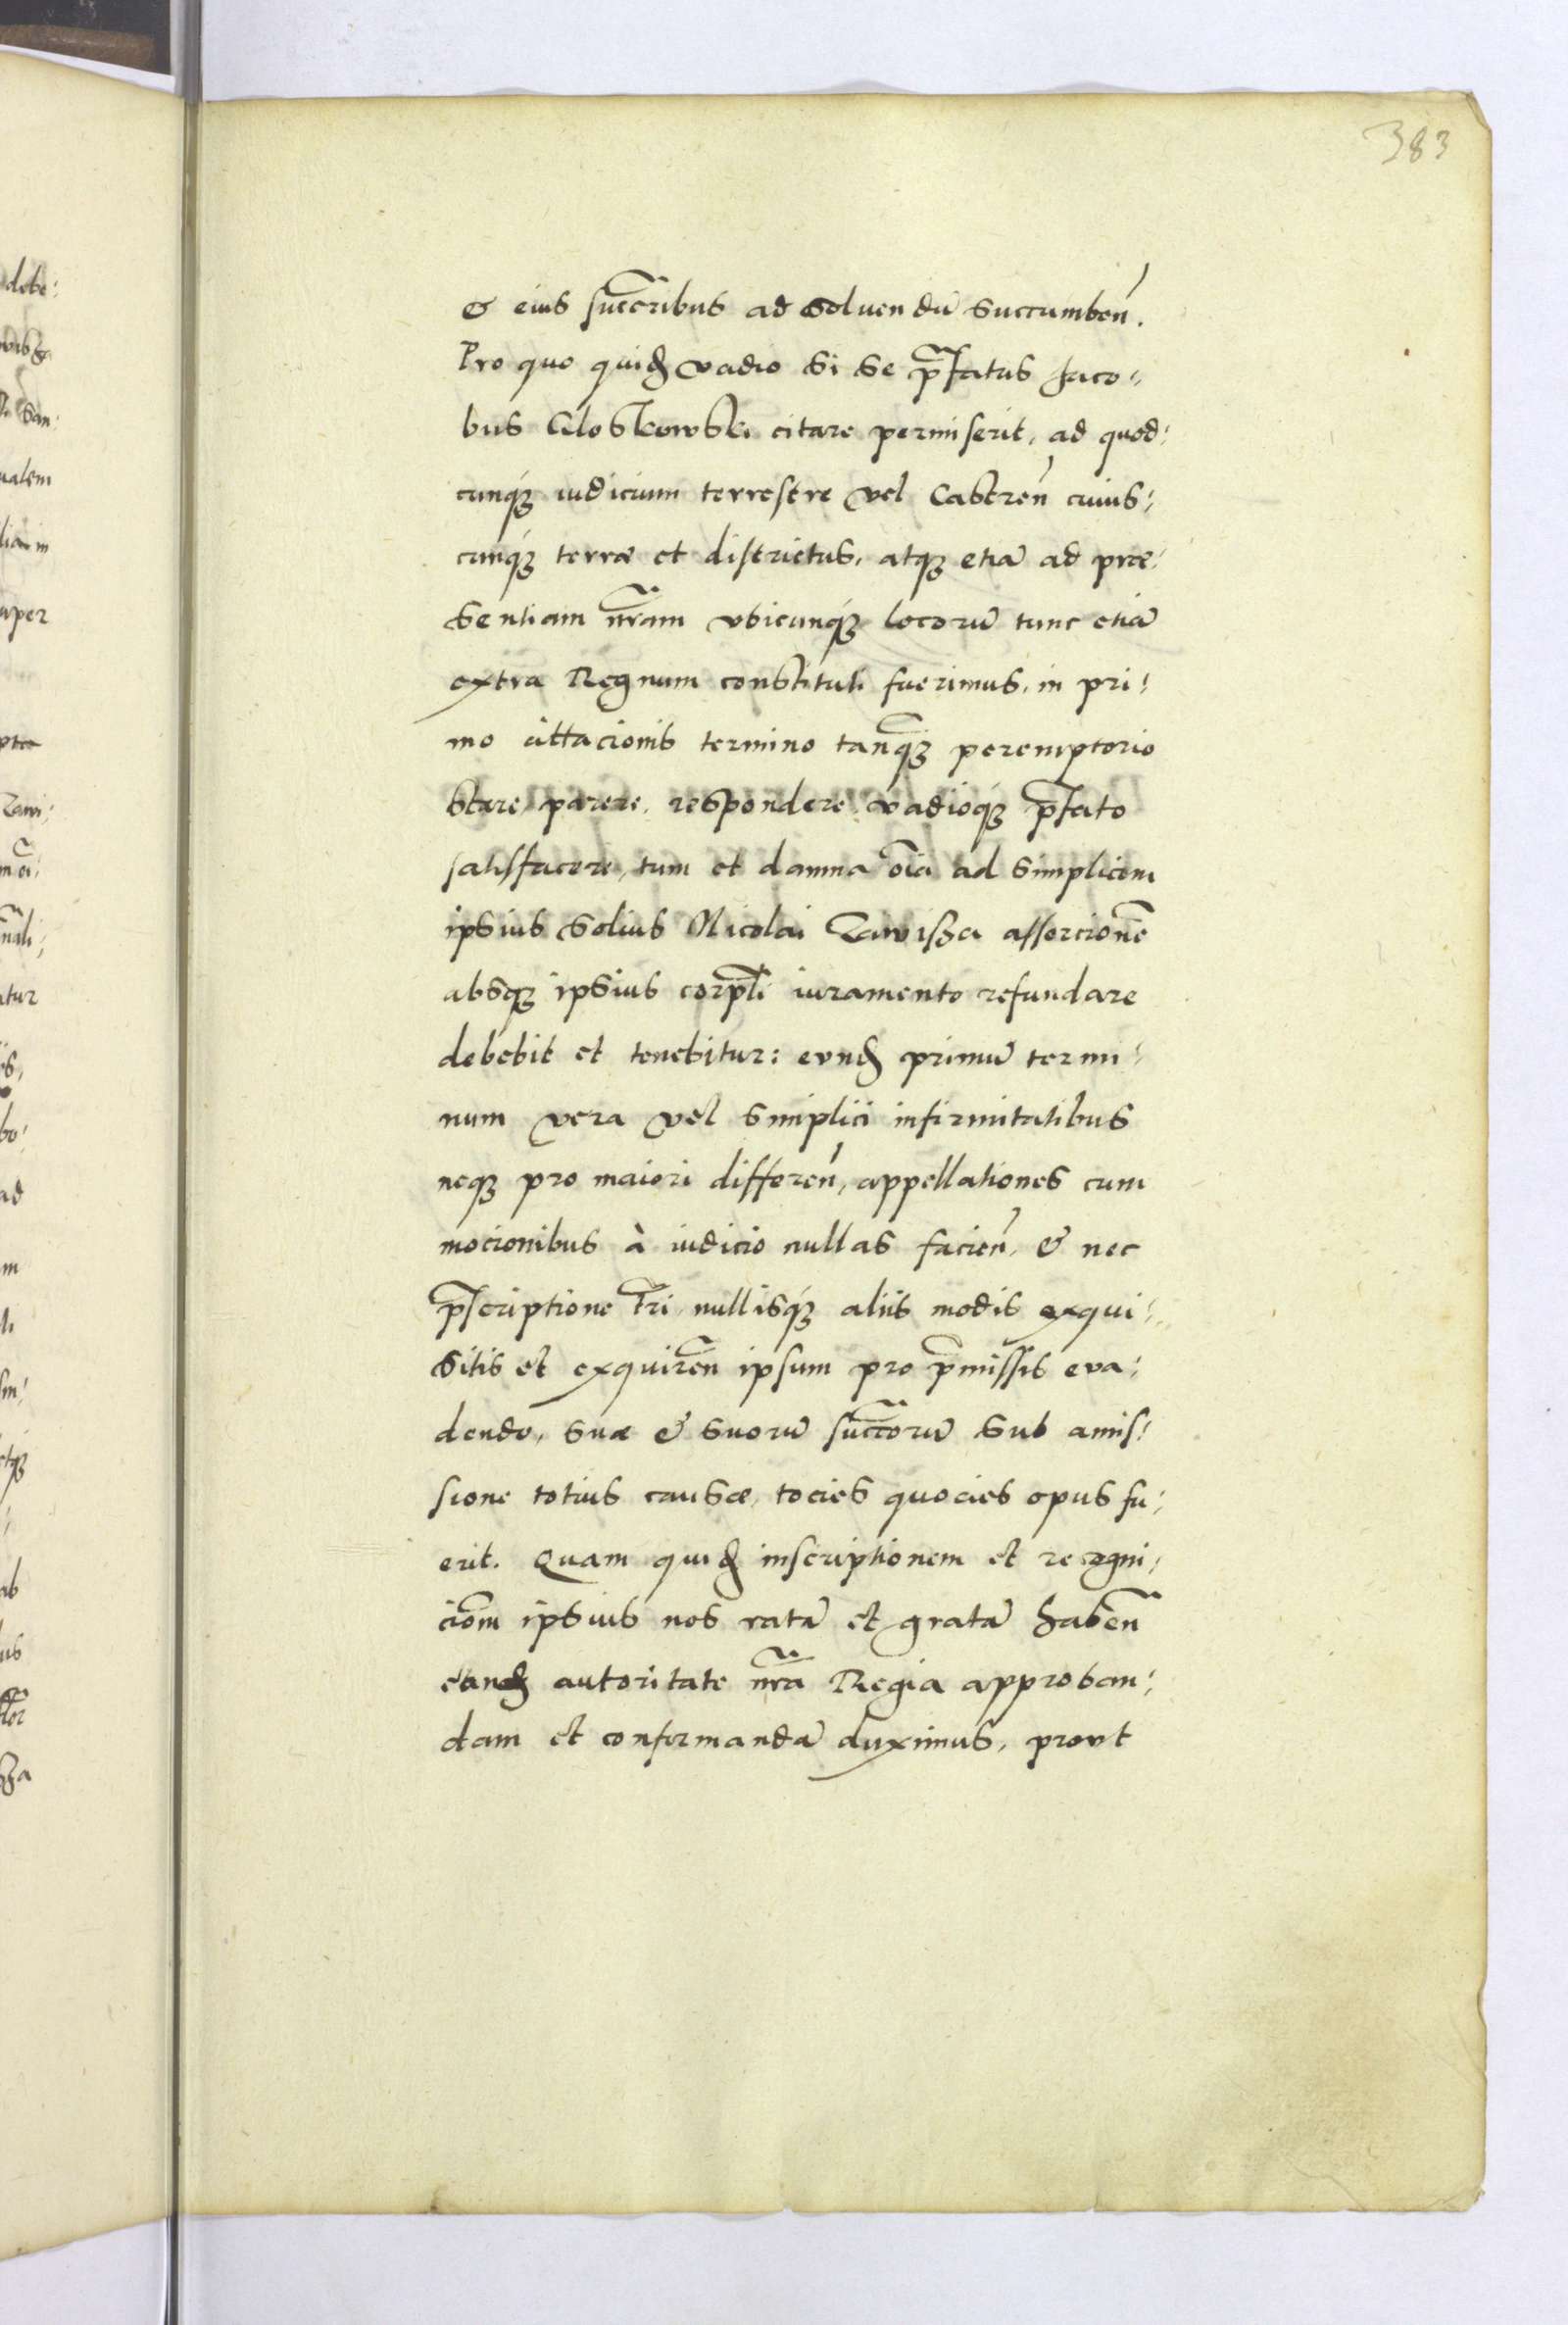 383
& eius succ̃oribus ad soluendũ succumbeñ.
Pro quo quidẽ vadio si se p̃fatus Jaco-
bus Gloskowski citare permiserit, ad quod-
cunqȝ iudicium terrestre vel Castreñ cuius-
cunqȝ terræ et districtus, atqȝ etiã ad præ-
sentiam nr̃am vbicunqȝ locorũ tunc etiã
extra Regnum constituti fuerimus, in pri-
mo cittacionis termino tanq̃ȝ peremptorio
stare, parere, respondere, vadioqȝ p̃fato
satisfacere, tum et damna õia ad simplicem
ipsius solius Nicolai Zawisza assercionẽ
absqȝ ipsius corp̃li iuramento refundare
debebit et tenebitur: eundẽ primũ termi-
num vera vel simplici infirmitatibus
neqȝ pro maiori differeñ, appellationes cum
mocionibus à iudicio nullas facieñ, & nec
p̃scriptione tr̃ri nullisqȝ aliis modis exqui-
sitis et exquireñ ipsum pro p̃missis eva-
dendo, suæ & suorũ succ̃orũ sub amis-
sione totius causæ, tocies quocies opus fu-
erit. Quam quidẽ inscriptionem et recogni-
ciom̃ ipsius nos ratã et gratã habeñ
eandẽ autoritate nr̃a Regia approban-
dam et confirmandã duximus, prout
debe:
alem
liam
uper
Zawi:
atur
bo:
ad
ab